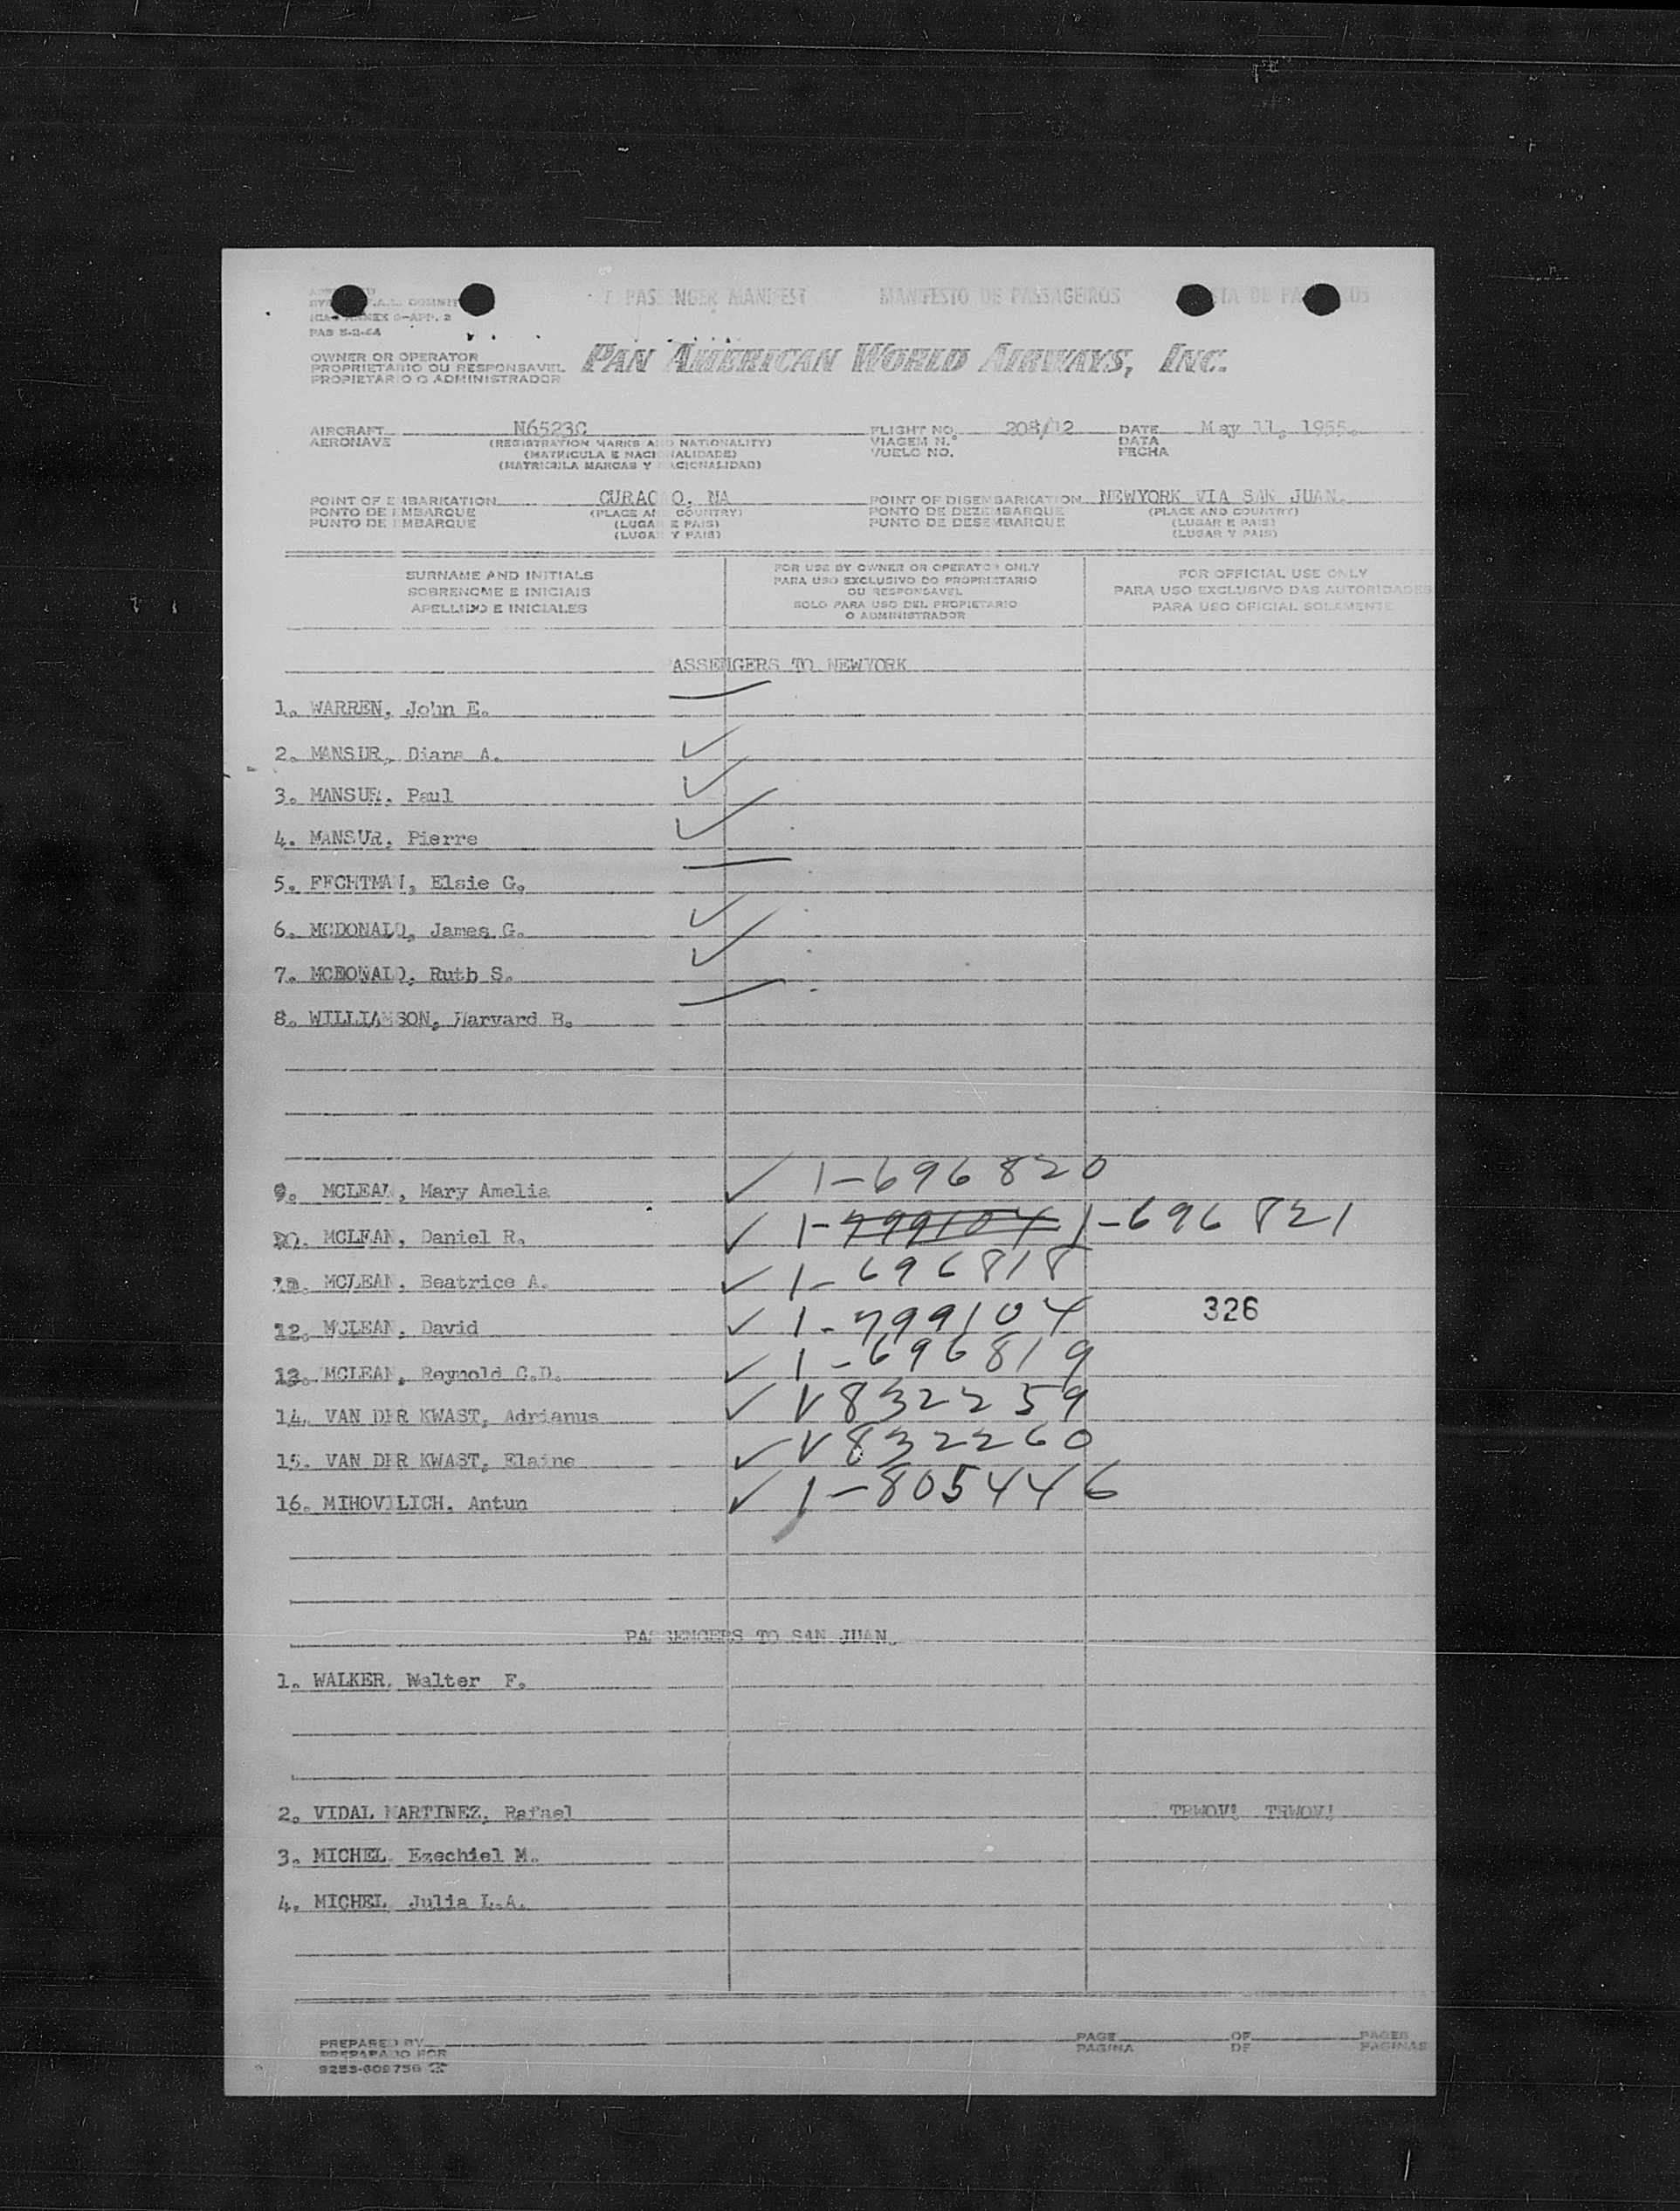 PASSENGER MANIFEST MANIFESTO DE PASSAGEIROS
ICAO ANNEX 9-APP. 2
OWNER OR OPERATOR
PROPRIETARIO OU RESPONSAVEL
PROPIETARIO O ADMINISTRADOR
PAN AMERICAN WORLD AIRWAYS, INC.
AIRCRAFT N6523C FLIGHT NO. 208/12 DATE May 11, 1955.
AERONAVE (REGISTRATION MARKS AND NATIONALITY) VIAGEM N.º DATA
(MATRICULA E NACIONALIDADE) VUELO NO. FECHA
(MATRICULA MARCAS Y NACIONALIDAD)
POINT OF EMBARKATION CURACAO, NA POINT OF DISEMBARKATION NEWYORK VIA SAN JUAN.
PONTO DE EMBARQUE (PLACE AND COUNTRY) PONTO DE DEZEMBARQUE (PLACE AND COUNTRY)
PUNTO DE EMBARQUE (LUGAR E PAIS) PUNTO DE DESEMBARQUE (LUGAR E PAIS)
(LUGAR Y PAIS) (LUGAR Y PAIS)
SURNAME AND INITIALS
SOBRENOME E INICIAIS
APELLIDO E INICIALES
FOR USE BY OWNER OR OPERATOR ONLY
PARA USO EXCLUSIVO DO PROPRIETARIO
OU RESPONSAVEL
SOLO PARA USO DEL PROPIETARIO
O ADMINISTRADOR
FOR OFFICIAL USE ONLY
PARA USO EXCLUSIVO DAS AUTORIDADES
PARA USO OFICIAL SOLAMENTE
PASSENGERS TO NEWYORK
1. WARREN, John E.
2. MANSUR, Diana A. ✓
3. MANSUR, Paul ✓
4. MANSUR, Pierre ✓
5. FECHTMAN, Elsie G.
6. MCDONALD, James G. ✓
7. MCDONALD, Ruth S. ✓
8. WILLIAMSON, Harvard B.
9. MCLEAN, Mary Amelia ✓ 1-696820
10. MCLEAN, Daniel R. ✓ 1-799104 1-696821
11. MCLEAN, Beatrice A. ✓ 1-696818
12. MCLEAN, David ✓ 1-799104 326
13. MCLEAN, Reynold C.D. ✓ 1-696819
14. VAN DER KWAST, Adrianus ✓ V832259
15. VAN DER KWAST, Elaine ✓ V832260
16. MIHOVILICH, Antun ✓ 1-805446
PASSENGERS TO SAN JUAN.
1. WALKER, Walter F.
2. VIDAL MARTINEZ, Rafael TRWOV! TRWOV!
3. MICHEL, Ezechiel M.
4. MICHEL, Julia L.A.
PREPARED BY PAGE OF PAGES
PREPARADO POR PAGINA DE PAGINAS